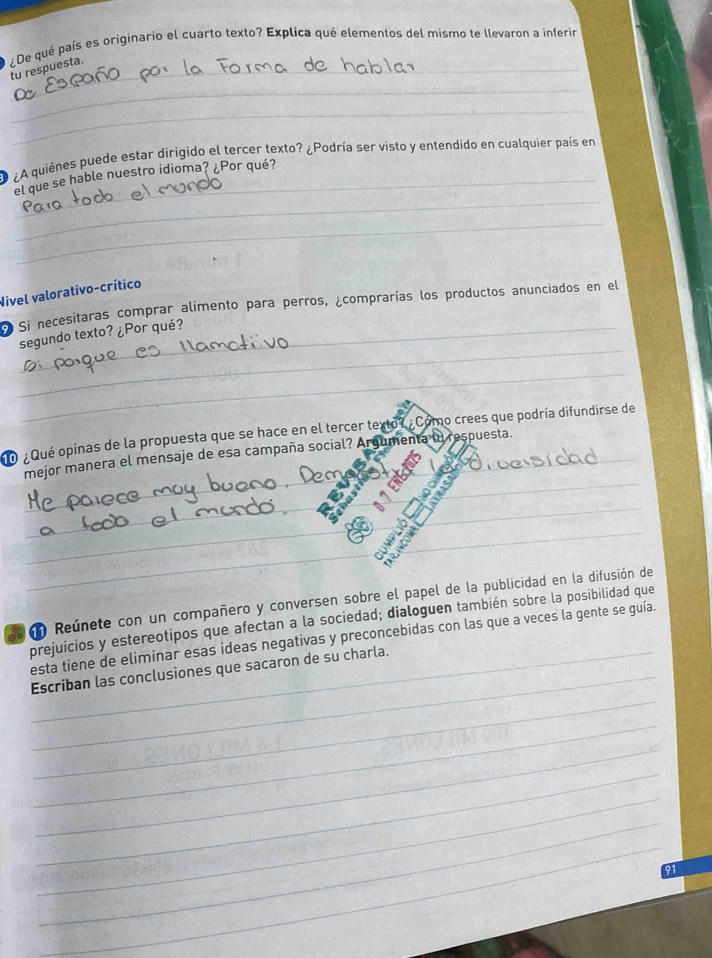 ¿De qué país es originario el cuarto texto? Explica qué elementos del mismo te llevaron a inferir
tu respuesta.
De España por la Forma de hablar
¿A quiénes puede estar dirigido el tercer texto? ¿Podría ser visto y entendido en cualquier país en
el que se hable nuestro idioma? ¿Por qué?
Para todo el mundo
Nivel valorativo-crítico
9 Si necesitaras comprar alimento para perros, ¿comprarías los productos anunciados en el
segundo texto? ¿Por qué?
Si porque es llamativo
10 ¿Qué opinas de la propuesta que se hace en el tercer texto? ¿Cómo crees que podría difundirse de
mejor manera el mensaje de esa campaña social? Argumenta tu respuesta.
Me parece muy bueno. Demostrar la diversidad
a todo el mundo.
REVISADO
Sebastián
07 ENE 2025
CUMPLIÓ
NO CUMPLIÓ
TAR. INCOMP.
ATRASADA
11 Reúnete con un compañero y conversen sobre el papel de la publicidad en la difusión de
prejuicios y estereotipos que afectan a la sociedad; dialoguen también sobre la posibilidad que
esta tiene de eliminar esas ideas negativas y preconcebidas con las que a veces la gente se guía.
Escriban las conclusiones que sacaron de su charla.
91